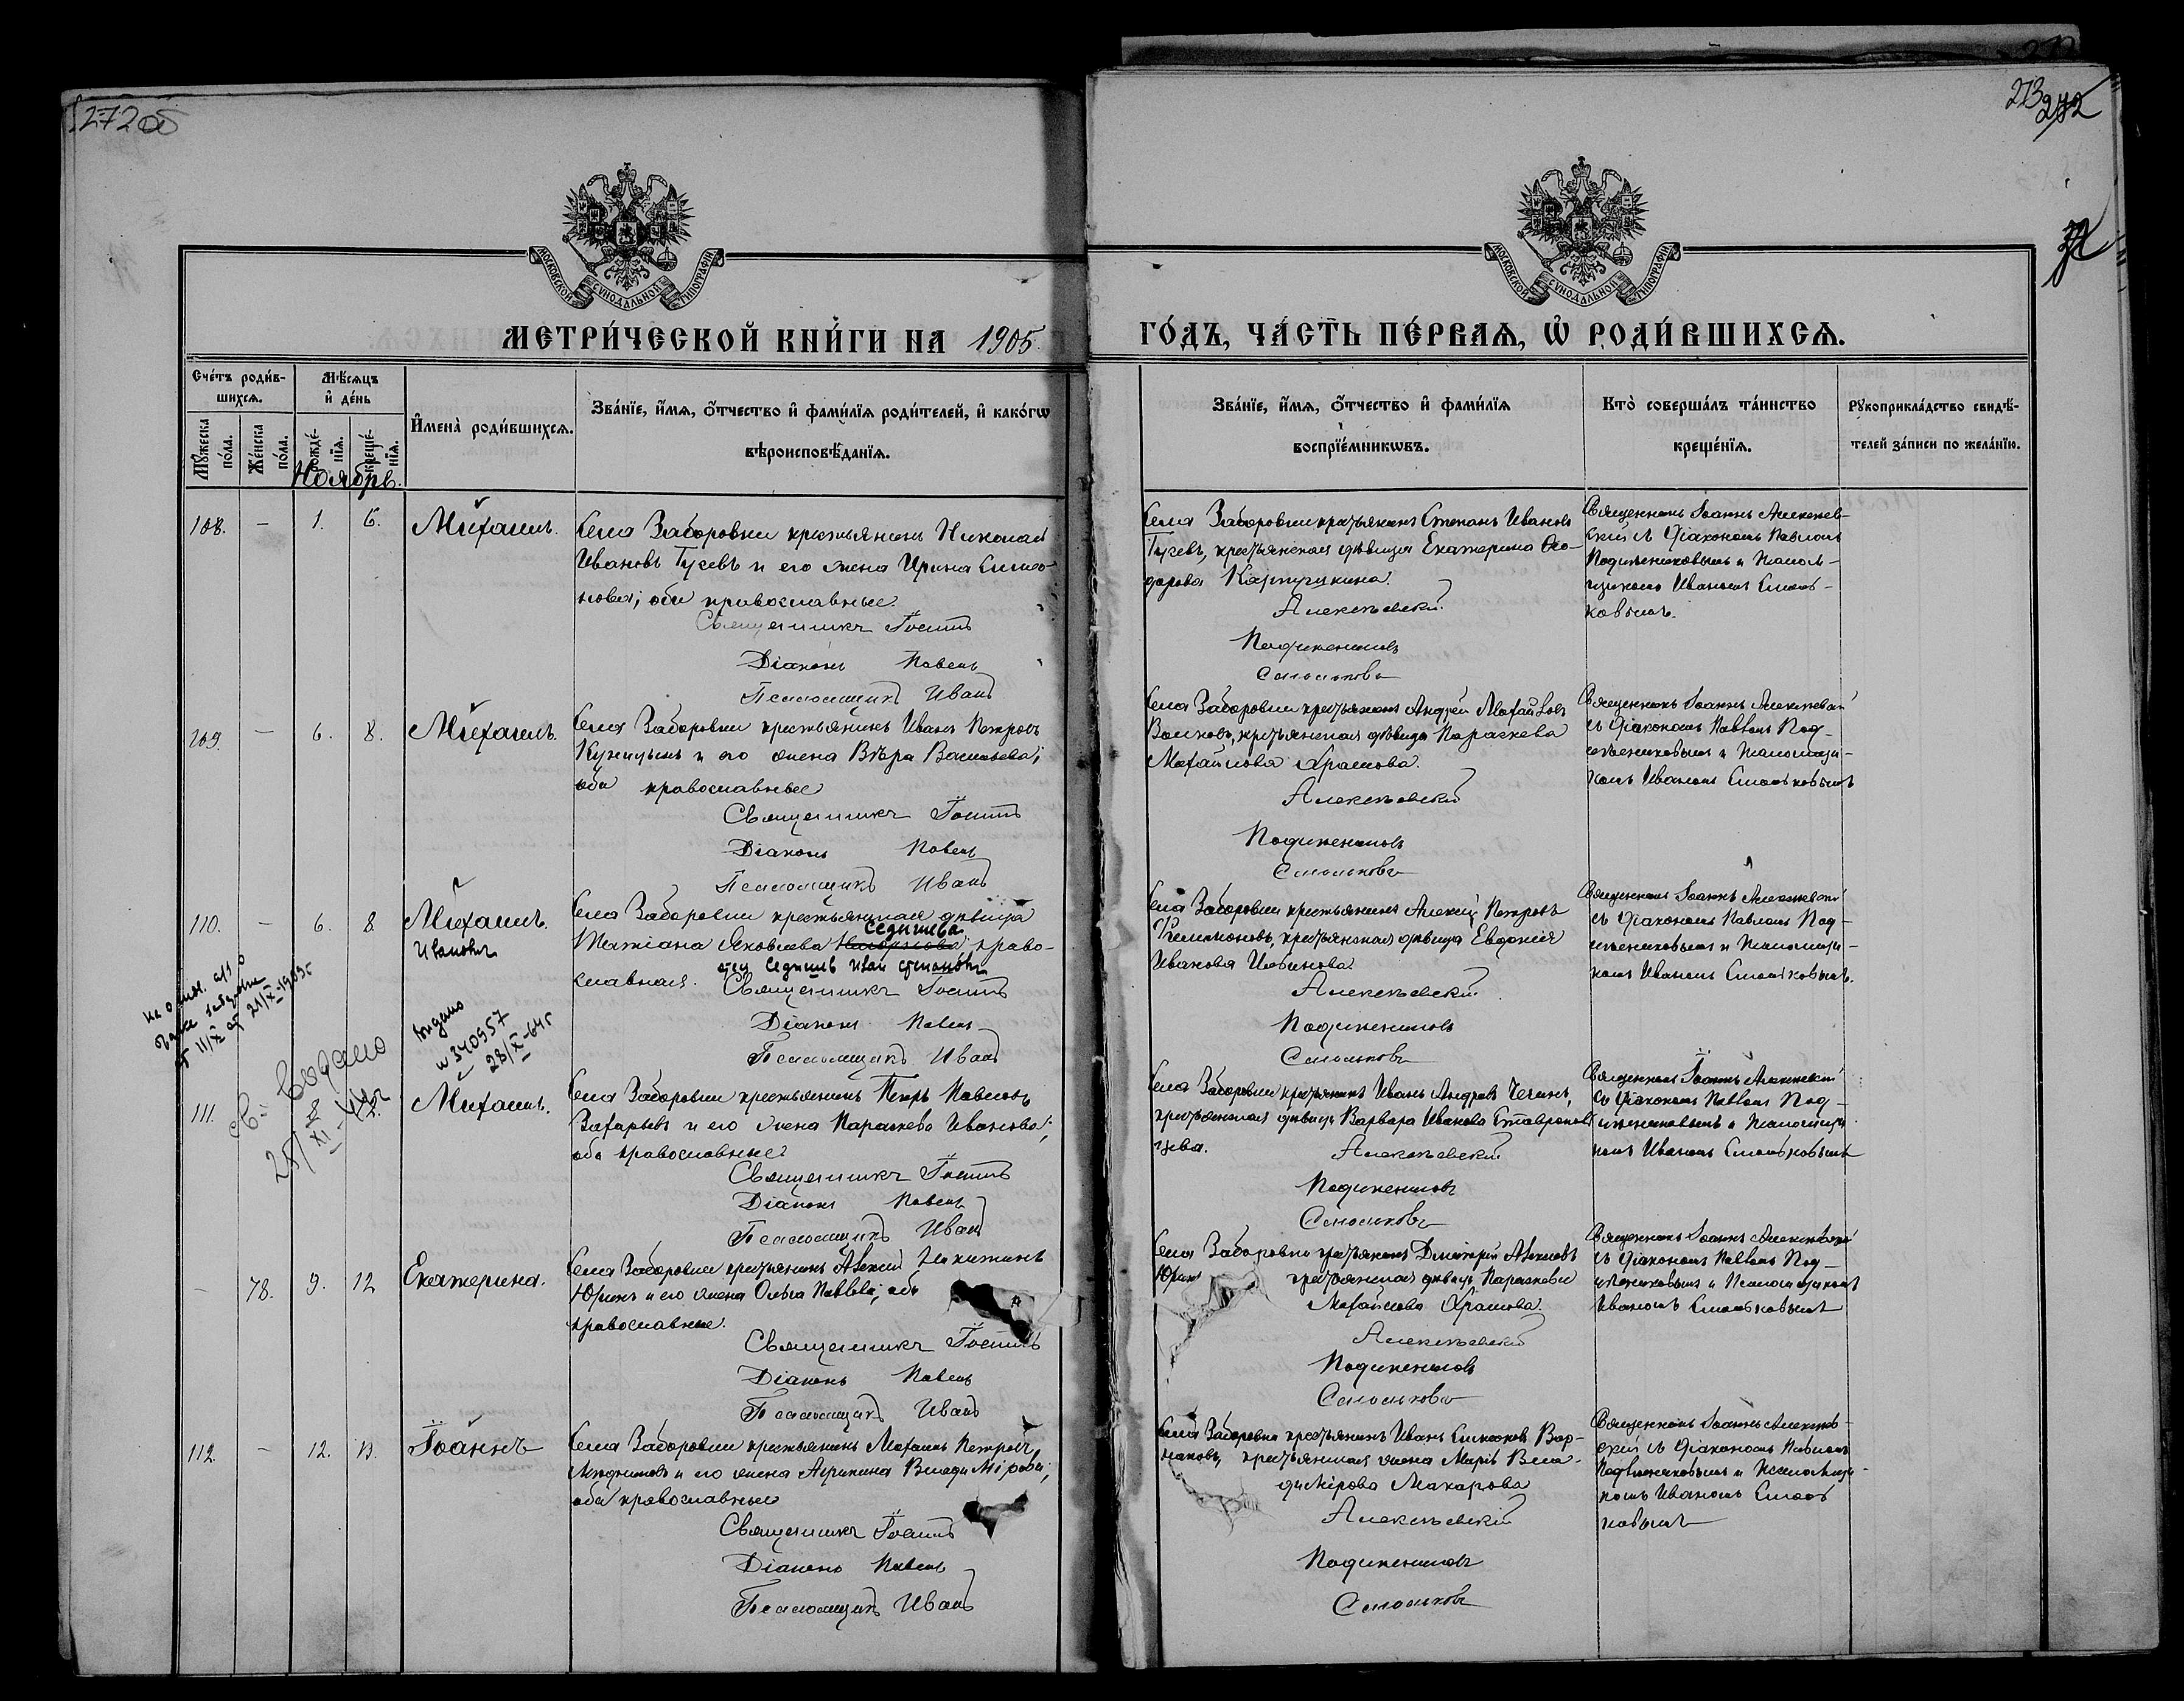 272об
МЕТРИ́ЧЕСКОЙ КНИ́ГИ НА 1905
Сче́тъ роди́в-
шихсѧ.
Мѣ́сѧцъ
и҆ де́нь
Мꙋ́жеска
по́ла.
Же́нска
по́ла.
рожде́-
нїѧ.
креще́-
нїѧ.
И҆мена̀ роди́вшихсѧ.
Зва́нїе, и҆́мѧ, ѻ҆́тчество и҆ фами́лїѧ роди́телей, и҆ како́гѡ
вѣроисповѣ́данїѧ.
Ноябрь.
108. — 1. 6. Михаилъ.
Села Заборовки крестьянинъ Николай
Ивановъ Гусевъ и его жена Ирина Симео-
нова; оба православные.
Священникъ Іоаннъ
Діаконъ Павелъ
Псаломщикъ Иванъ
109. — 6. 8. Михаилъ.
Села Заборовки крестьянинъ Иванъ Петровъ
и его жена Вѣра Васильева;
оба православные
Священникъ Іоаннъ
Діаконъ Павелъ
Псаломщикъ Иванъ
110. — 6. 8. Михаилъ.
Иванович
Села Заборовки крестьянская дѣвица
Седишева
Татіана Яковлева право-
отец Седишев Иван Степанович
славная. Священникъ Іоаннъ
Діаконъ Павелъ
Псаломщикъ Иванъ
Выдано
№ 340957
28/X-64г
Выдано
111. Михаилъ.
Села Заборовки крестьянинъ Петръ Павловъ
Захарьевъ и его жена Параскева Иванова;
оба православные
Священникъ Іоаннъ
Діаконъ Павелъ
Псаломщикъ Иванъ
— 78. 9. 12 Екатерина.
Села Заборовки крестьянинъ Алексий Никитинъ
Юринъ и его жена Ольга Павлова; оба
православные.
Священникъ Іоаннъ
Діаконъ Павелъ
Псаломщикъ Иванъ
112. — 12. 13. Іоаннъ
Села Заборовки крестьянинъ Михаилъ Петровъ
и его жена Агрипина Владимірова;
оба православные
Священникъ Іоаннъ
Діаконъ Павелъ
Псаломщикъ Иванъ
273 272
ГО́ДЪ, ЧА́СТЬ ПЕ́РВАѦ, Ѡ҆ РОДИ́ВШИХСѦ.
Зва́нїе, и҆́мѧ, ѻ҆́тчество и҆ фами́лїѧ
воспрїе́мникѡвъ.
Кто̀ соверша́лъ та́инство
креще́нїѧ.
Рꙋкоприкла́дство свидѣ́-
телей за́писи по жела́нїю.
Села Заборовки крестьянинъ Степанъ Ивановъ
Гусевъ, крестьянская дѣвица Екатерина Ѳео-
дорова Картушкина.
Алексѣевскій
Подлѣсниковъ
Смольковъ
Священникъ Іоаннъ Алексѣев-
скій съ Діакономъ Павломъ
Подлѣсниковымъ и Псалом-
щикомъ Иваномъ Смоль-
ковымъ.
Села Заборовки крестьянинъ Андрей Михайловъ
Волковъ, крестьянская дѣвица Параскева
Михайлова Храмова.
Алексѣевскій
Подлѣсниковъ
Смольковъ
Священникъ Іоаннъ Алексѣевскій
съ Діакономъ Павломъ Под-
лѣсниковымъ и Псаломщи-
комъ Иваномъ Смольковымъ
Села Заборовки крестьянинъ Алексій Петровъ
крестьянская дѣвица Евдокія
Иванова
Алексѣевскій
Подлѣсниковъ
Смольковъ
Священникъ Іоаннъ Алексѣевскій
съ Діакономъ Павломъ Под-
лѣсниковымъ и Псаломщи-
комъ Иваномъ Смольковымъ.
Села Заборовки крестьянинъ Иванъ Андреевъ
крестьянская дѣвица Варвара Иванова
Алексѣевскій
Подлѣсниковъ
Смольковъ
Священникъ Іоаннъ Алексѣевскій
съ Діакономъ Павломъ Под-
лѣсниковымъ и Псаломщи-
комъ Иваномъ Смольковымъ
Села Заборовки крестьянинъ Димитрій Алексѣевъ
Юринъ крестьянская дѣвица Параскева
Михайлова Храмова.
Алексѣевскій
Подлѣсниковъ
Смольковъ
Священникъ Іоаннъ Алексѣевскій
съ Діакономъ Павломъ Под-
лѣсниковымъ и Псаломщикомъ
Иваномъ Смольковымъ
Села Заборовки крестьянинъ Иванъ Симеоновъ Вар-
наковъ, крестьянская жена Марія Вла-
димірова Макарова
Алексѣевскій
Подлѣсниковъ
Смольковъ
Священникъ Іоаннъ Алексѣев-
скій съ Діакономъ Павломъ
Подлѣсниковымъ и Псаломщи-
комъ Иваномъ Смоль
ковымъ